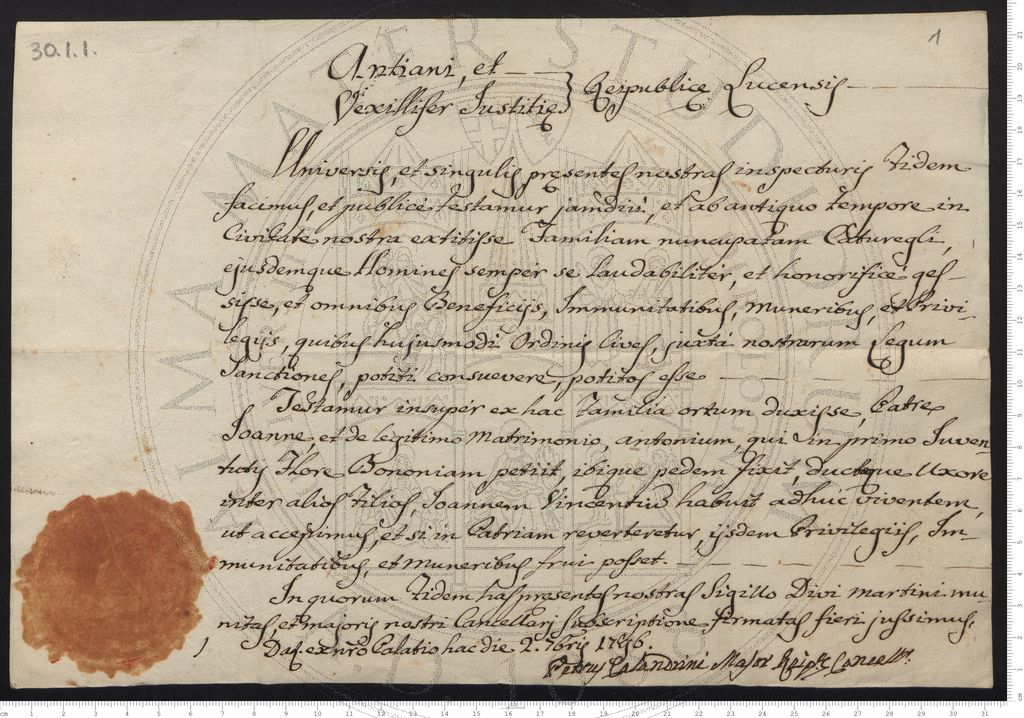 30.1.1.
1
Antiani, et
Vexillifer Justitię } Reipublicę Lucensis
Universis, et singulis pręsentes nostras inspecturis Fidem
facimus, et publicè testamur jamdiù, et ab antiquo tempore in
Civitate nostra extitisse Familiam nuncupatam Caturegli,
ejusdemque Homines sempèr se laudabiliter, et honorificè ges-
sisse, et omnibus Beneficijs, Immunitatibus, Muneribus, et Privi-
legijs, quibus hujusmodi Ordinis Cives, juxtà nostrarum Legum
Sanctiones, potiti consuevere, potitos esse
Testamur insupèr ex hac Familia ortum duxisse, Patre
Joanne, et de legitimo Matrimonio, antonium, qui in primo Juven-
tutis Flore Bononiam petiit, ibique pedem fixit, ducteque Uxore
inter alios Filios, Joannem Vincentiũ habuit adhuc viventem,
ut accepimus, et si in Patriam reverteretur, ijsdem Privilegiis, Im-
munitatibus, et Muneribus frui posset.
In quorum Fidem has presentes nostras Sigillo Divi Martini mu-
nitas, et majoris nostri Cancellarj subscriptione firmatas fieri jussimus.
Dat. ex nr̃o Palatio hac die 2. 7bris
Petrus Calandrini Major Reip.ce Cancell.s